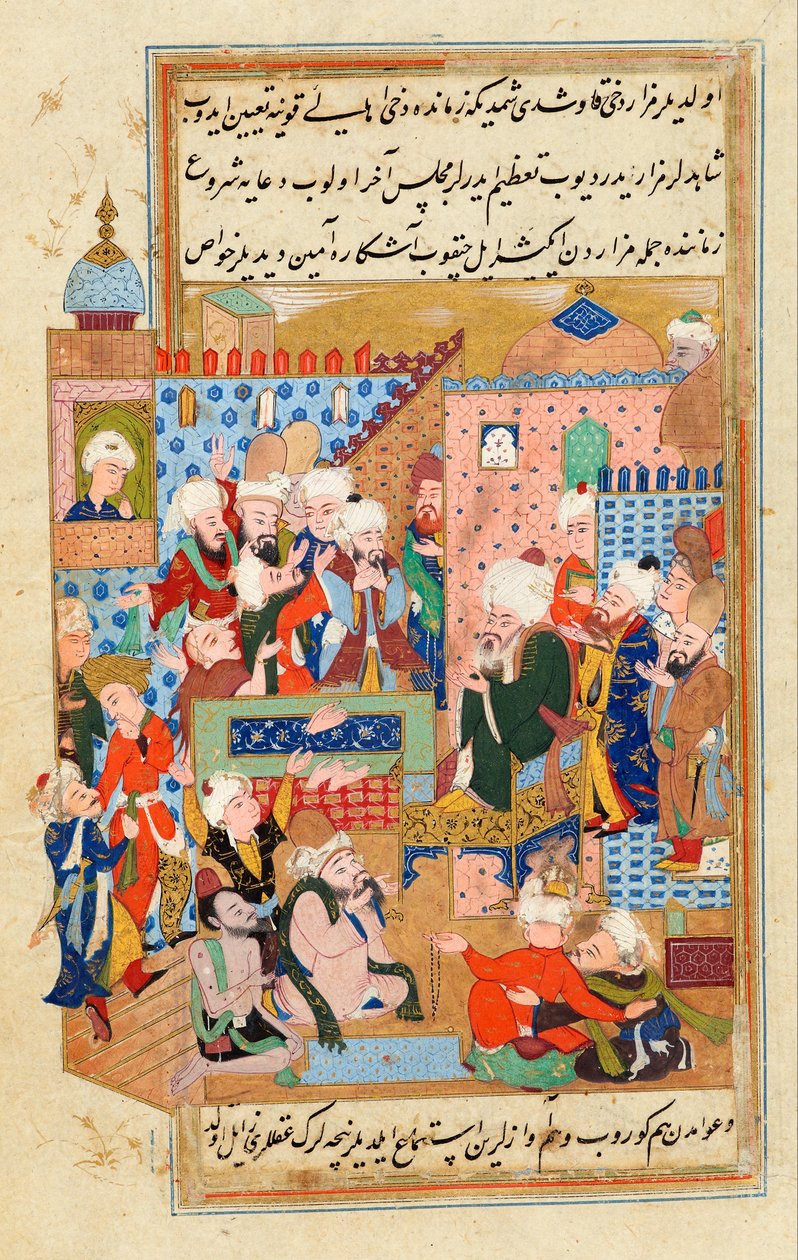 اولدیلر مزار دخی قاوشدی شمدیکه زمانده دخی اهالئ قونیه تعیین ایدوب
شاهدلر مزاریدر دیوب تعظیم ایدرلر مجلس آخر اولوب دعایه شروع
زماننده جمله مزاردن ایکیشر ایل چقوب آشکاره آمین دیدیلر خواص
وعوامدن هم کوروب وهم آوازلرین استماع ایلدیلر نیچه لرک غفلتلری زائل اولدی